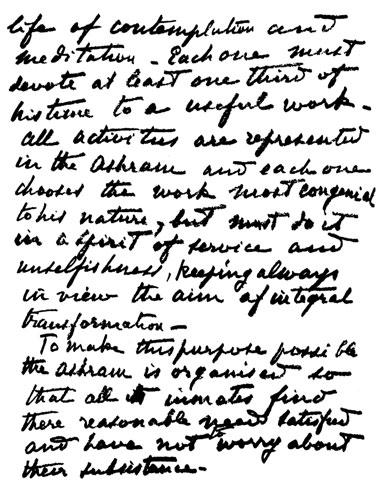 life of contemplation and
meditation - Each one must
devote at least one third of
his time to a useful work -
All activities are represented
in the Ashram and each one
chooses the work most congenial
to his nature, but must do it
in a spirit of service and
unselfishness, keeping always
in view the aim of integral
transformation -
To make this purpose possible
the Ashram is organised so
that all its inmates find
there reasonable need satisfied
and have not to worry about
their subsistance -